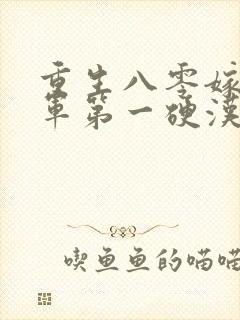 重生八零嫁
军第一硬汉
喫鱼鱼的喵喵